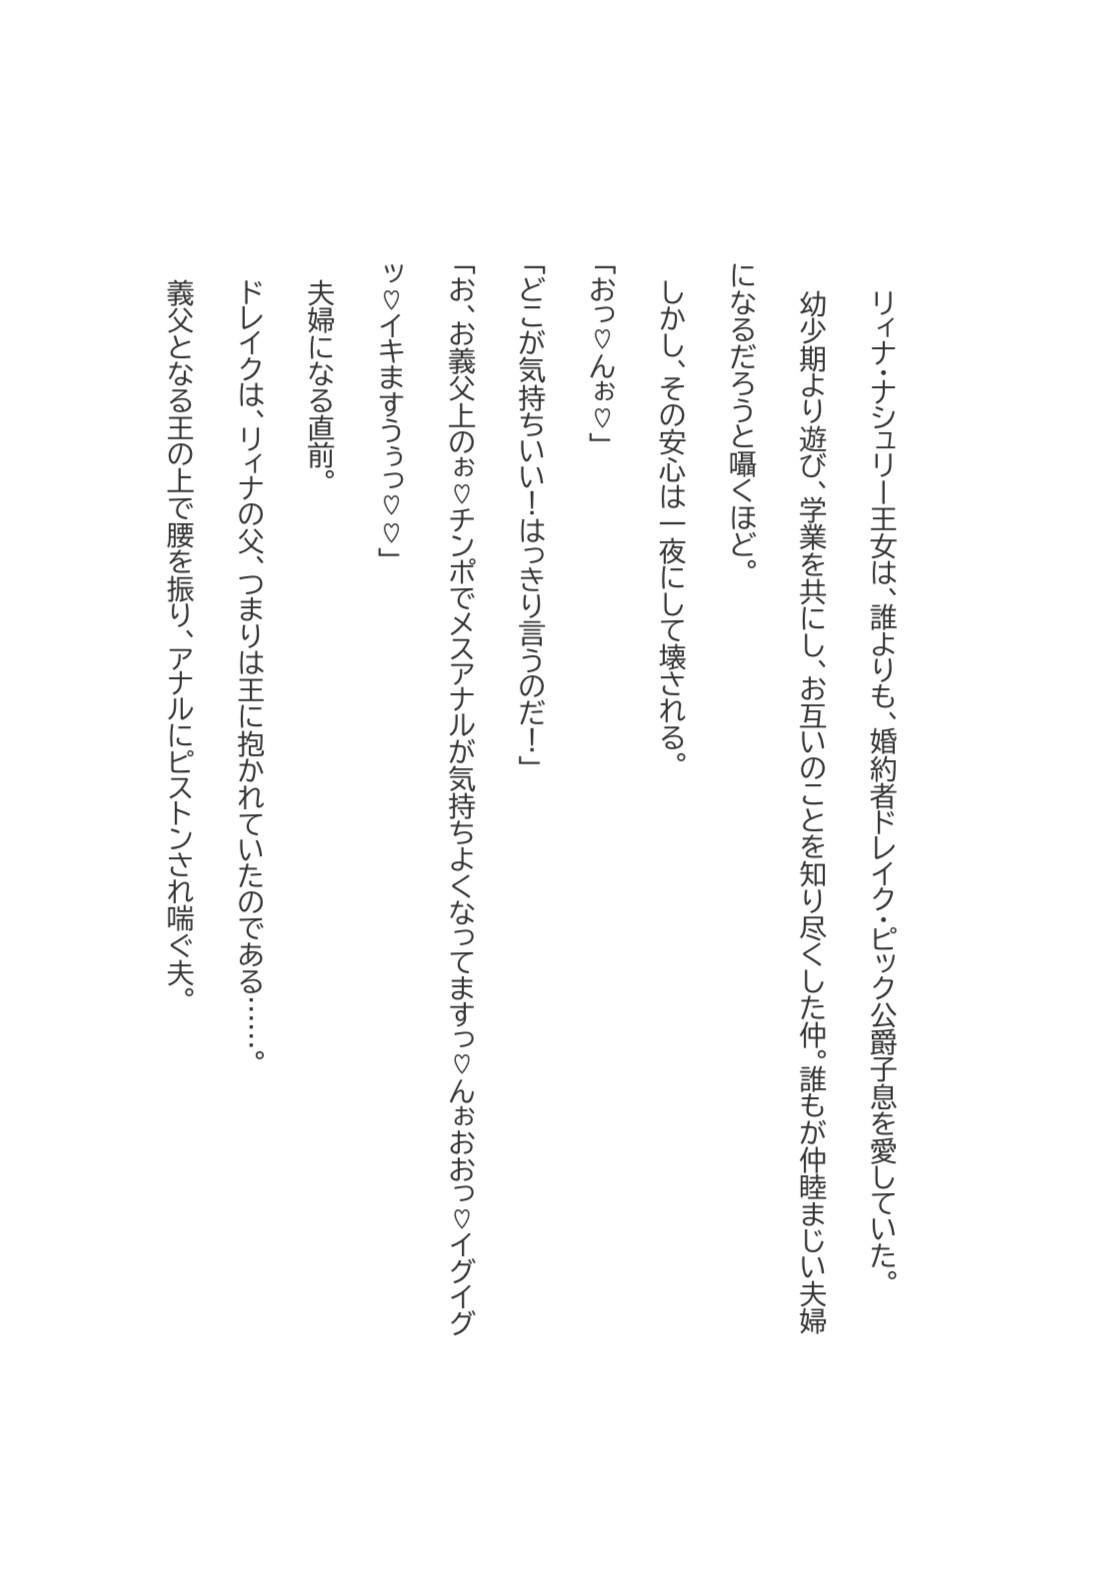 リィナ・ナシュリー王女は、誰よりも、婚約者ドレイク・ピック公爵子息を愛していた。
幼少期より遊び、学業を共にし、お互いのことを知り尽くした仲。誰もが仲睦まじい夫婦
になるだろうと囁くほど。
しかし、その安心は一夜にして壊される。
「おっ♡んぉ♡」
「どこが気持ちいい！はっきり言うのだ！」
「お、お義父上のぉ♡チンポでメスアナルが気持ちよくなってますっ♡んぉおおっ♡イグイグ
ッ♡イキますうぅっ♡♡」
夫婦になる直前。
ドレイクは、リィナの父、つまりは王に抱かれていたのである……。
義父となる王の上で腰を振り、アナルにピストンされ喘ぐ夫。